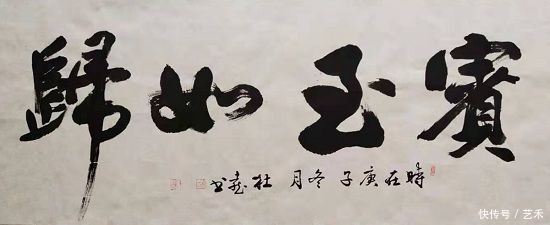 賓至如歸
時在庚子冬月 杜 书
快传号 / 艺禾